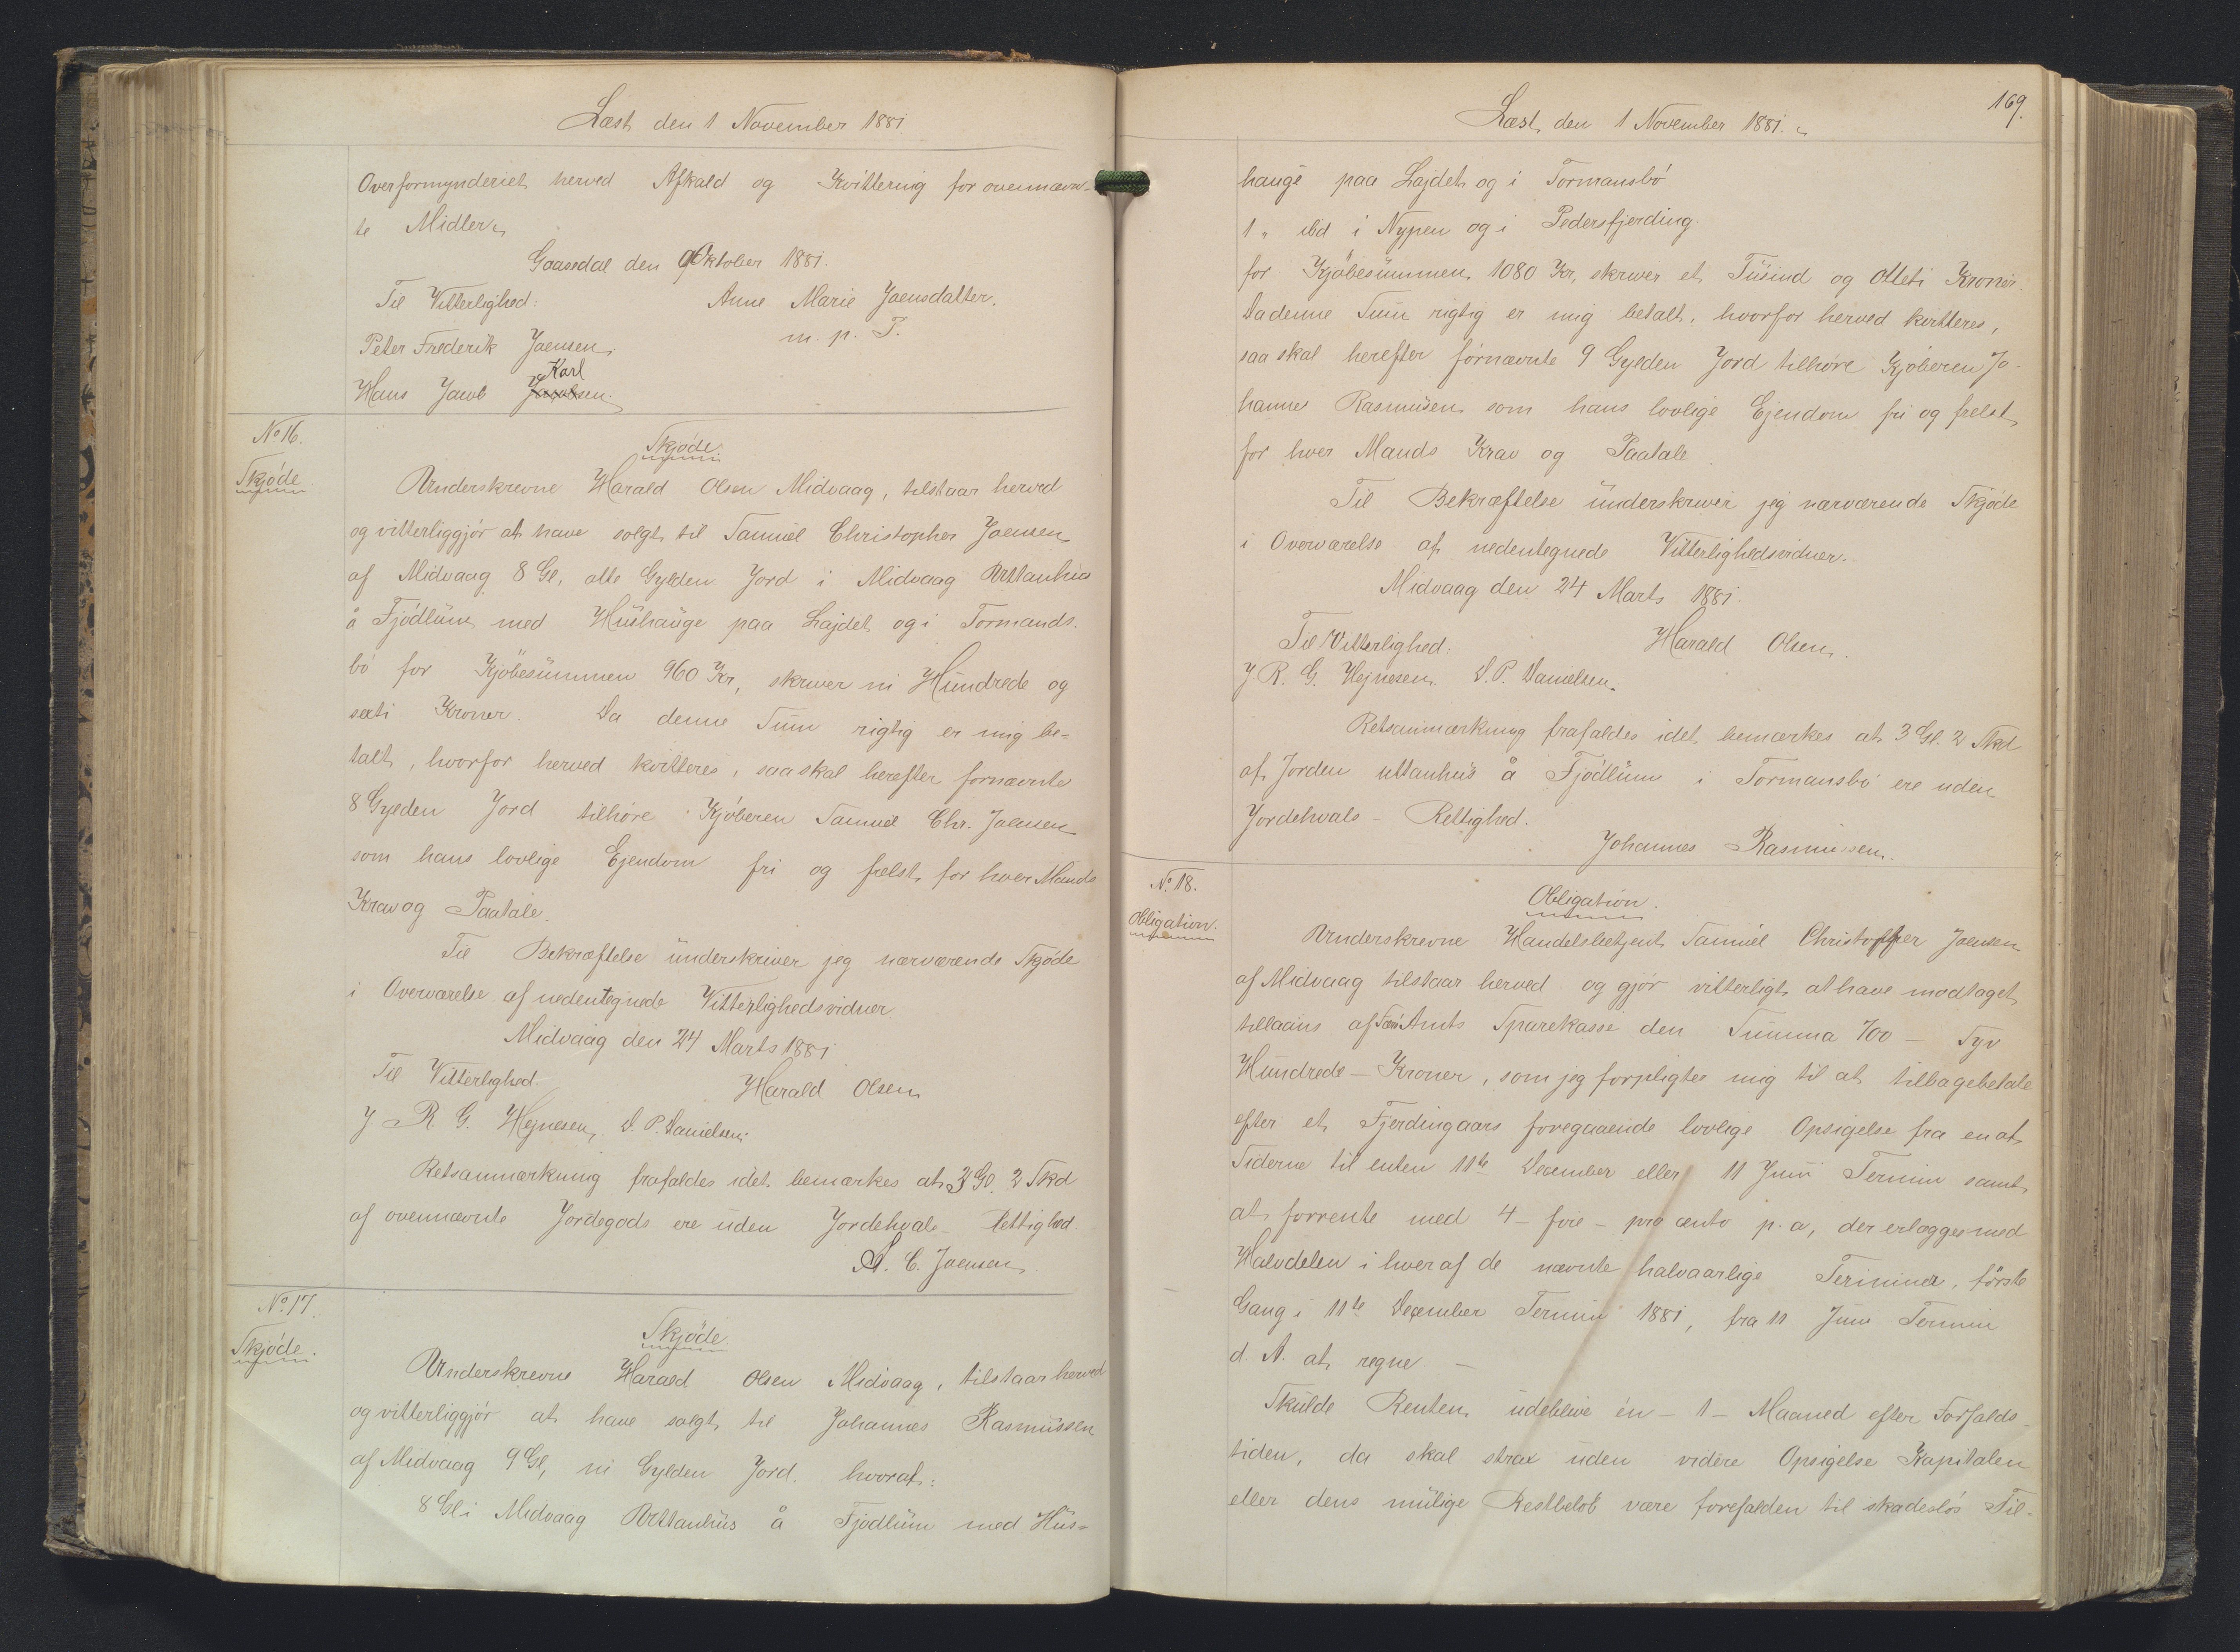 Læst den 1 November 1881
Overformynderiet herved Afkald og Kvittering for ovennævn-
te Midler.
Gaasedal den Oktober 1881.
Til Vitterlighed: Anne Marie Joensdatter.
Peter Frederik Joensen m. p. P.
Karl
Hans Jacob Jacobsen.
No 16.
Skjøde
Skjøde
Underskrevne Harald Olsen Midvaag, tilstaar herved
og vitterliggjör at have solgt til Samuel Christopher Joensen
af Midvaag 8 Gl, otte Gylden Jord i Midvaag Uttanhús
å Fjødlum med Húshauge paa Lajdet og i Tormands-
bö for Kjöbesummen 960 Kr, skriver ni Hundrede og
sexti Kroner. Da denne Sum rigtig er mig be-
talt, hvorfor herved kvitteres, saa skal herefter fornævnte
8 Gylden Jord tilhöre Kjöberen Samuel Chr. Joensen
som hans lovlige Ejendom fri og frelst for hver Mands
Krav og Paatale.
Til Bekræftelse underskriver jeg nærværende Skjøde
i Overværelse af nedentegnede Vitterlighedsvidner.
Midvaag den 24 Marts 1881
Til Vitterlighed Harald Olsen
J. R. G. Hejnesen. D. P. Danielsen.
Retsanmærkning frafaldes idet bemærkes at 3 Gl. 2 Skd
af ovennævnte Jordegods ere uden Jordehvals-rettighed.
S. C. Joensen
No 17.
Skjøde.
Skjøde
Underskrevne Harald Olsen Midvaag, tilstaar herved
og vitterliggjör at have solgt til Johannes Rasmussen
af Midvaag 9 Gl, ni Gylden Jord. hvoraf:
8 Gl i Midvaag Uttanhús å Fjødlum med Hús-
169.
Læst den 1 November 1881.
hauge paa Lajdet og i Tormansbö
1 " ibd i Nypen og i Pedersfjerding.
for Kjöbesummen 1080 Kr, skriver et Tusind og Otteti Kroner.
Da denne Sum rigtig er mig betalt, hvorfor herved kvitteres,
saa skal herefter fornævnte 9 Gylden Jord tilhöre Kjöberen Jo-
hannes Rasmussen som hans lovlige Ejendom fri og frelst
for hver Mands Krav og Paatale.
Til Bekræftelse underskriver jeg nærværende Skjøde
i Overværelse af nedentegnede Vitterlighedsvidner.
Midvaag den 24 Marts 1881.
Til Vitterlighed: Harald Olsen.
J. R. G. Hejnesen. D. P. Danielsen.
Retsanmærkning frafaldes idet bemærkes at 3 Gl. 2 Skd
af Jorden uttanhús å Fjødlum i Tormansbö ere uden
Jordehvals-Rettighed.
Johannes Rasmussen.
No. 18.
Obligation.
Obligation.
Underskrevne Handelsbetjent Samuel Christoffer Joensen
af Midvaag tilstaar herved og gjör vitterligt at have modtaget
tillaans af Færö Amts Sparekasse den Summa 700 – Syv
Hundrede – Kroner, som jeg forpligter mig til at tilbagebetale
efter et Fjerdingaars foregaaende lovlige Opsigelse fra en af
Siderne til enten 11te December eller 11 Juni Termin samt
at forrente med 4 – fire – pro cento p. a, der erlægges med
Halvdelen i hver af de nævnte halvaarlige Terminer, förste
Gang i 11te December Termin 1881, fra 11 Juni Termin
d. A. at regne. –
Skulde Renten udeblive én – 1 – Maaned efter Forfalds-
tiden, da skal strax uden videre Opsigelse Kapitalen
eller dens mulige Restbelöb være forefalden til skadeslös Til-